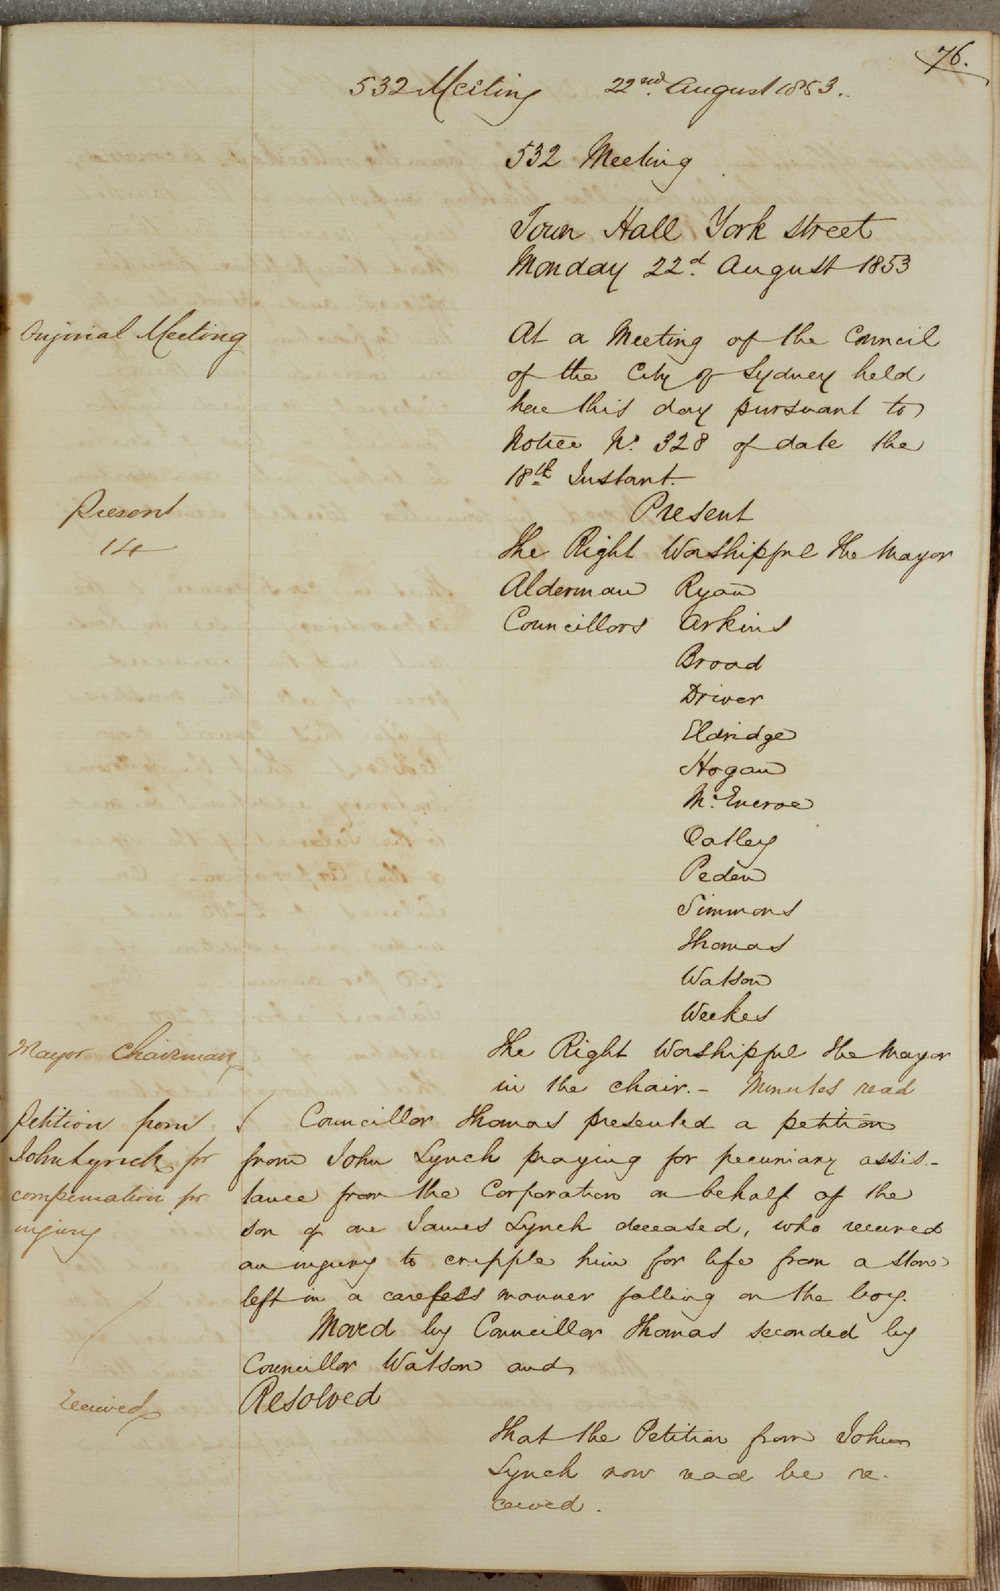 76.
532 Meeting 22nd August 1853.
532 Meeting
Town Hall York Street
Monday 22d. August 1853
Original Meeting
At a Meeting of the Council
of the City of Sydney held
here this day pursuant to
Notice No. 328 of date the
18th Instant.
Present
14
Present
The Right Worshipful The Mayor
Alderman Ryan
Councillors Arkins
Broad
Driver
Eldridge
Hogan
Mc.Encroe
Oatley
Peden
Simmons
Thomas
Watson
Weekes
Mayor Chairman
The Right Worshipful The Mayor
in the chair. - Minutes read
Petition from
John Lynch for
compensation for
injury
Councillor Thomas presented a petition
from John Lynch praying for pecuniary assis-
tance from the Corporation on behalf of the
son of one James Lynch deceased, who received
an injury to cripple him for life from a stone
left in a careless manner falling on the boy.
Moved by Councillor Thomas seconded by
Councillor Watson and
received
Resolved
That the Petition from John
Lynch now read be re-
ceived.